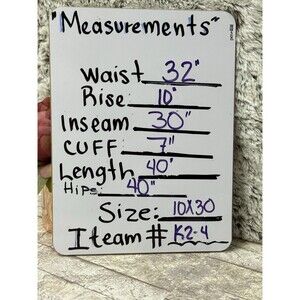 "Measurements"
Waist 32"
Rise: 10"
Inseam 30"
CUFF: 7"
Length 40"
Hips: 40"
Size: 10X30
Iteam # K2-4